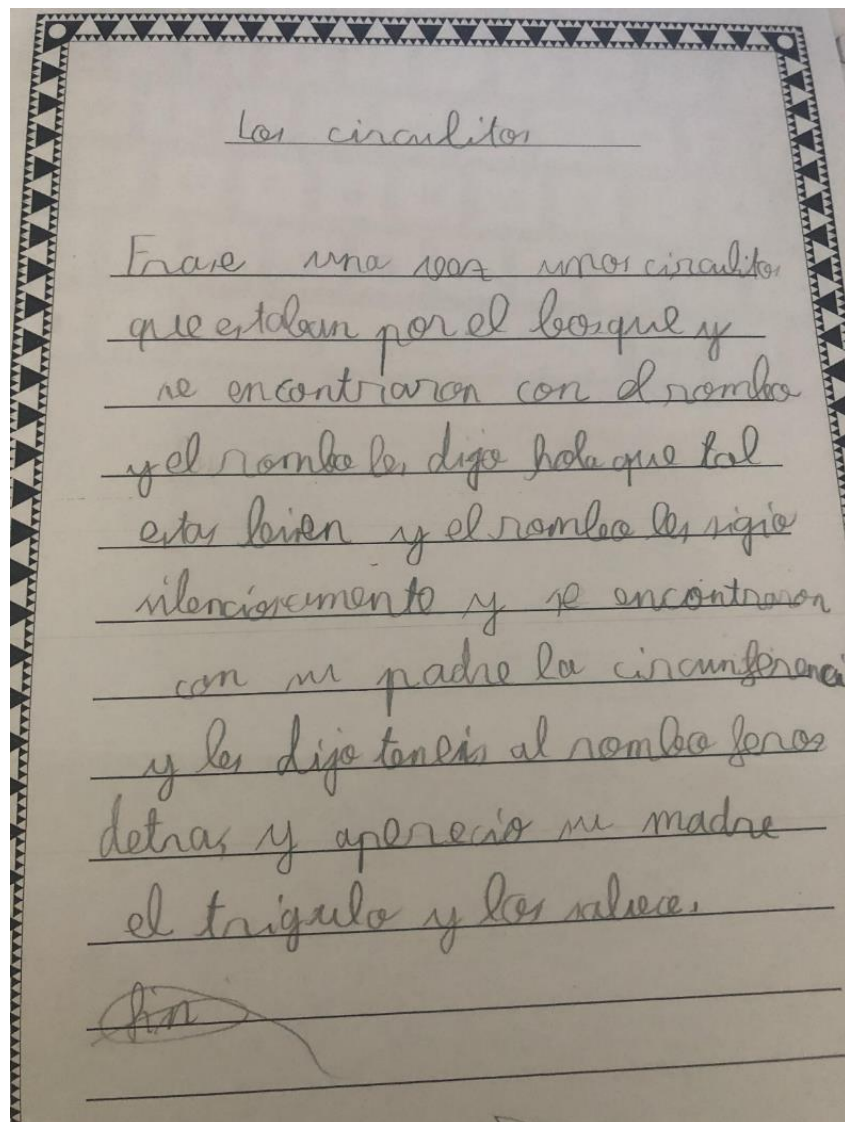 Los circulitos
Erase una vez unos circulitos
que estaban por el bosque y
se encontraron con el rombo
y el rombo les digo hola que tal
estas bien y el rombo les sigio
silenciosamente y se encontraron
con su padre la circunferenci
y les dijo teneis al rombo feroz
detras y aperecio su madre
el trigulo y los salvo.
fin